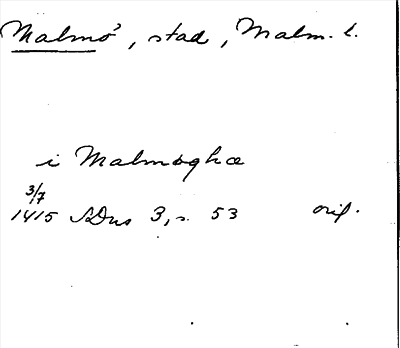 Malmö, stad, Malm. l.
i Malmøghæ
3/7
1415 SDns 3, s. 53 orig.